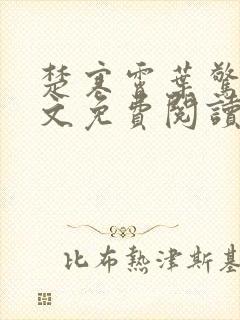 楚寒霄葉驚
文免費閱讀
比布熱津斯基